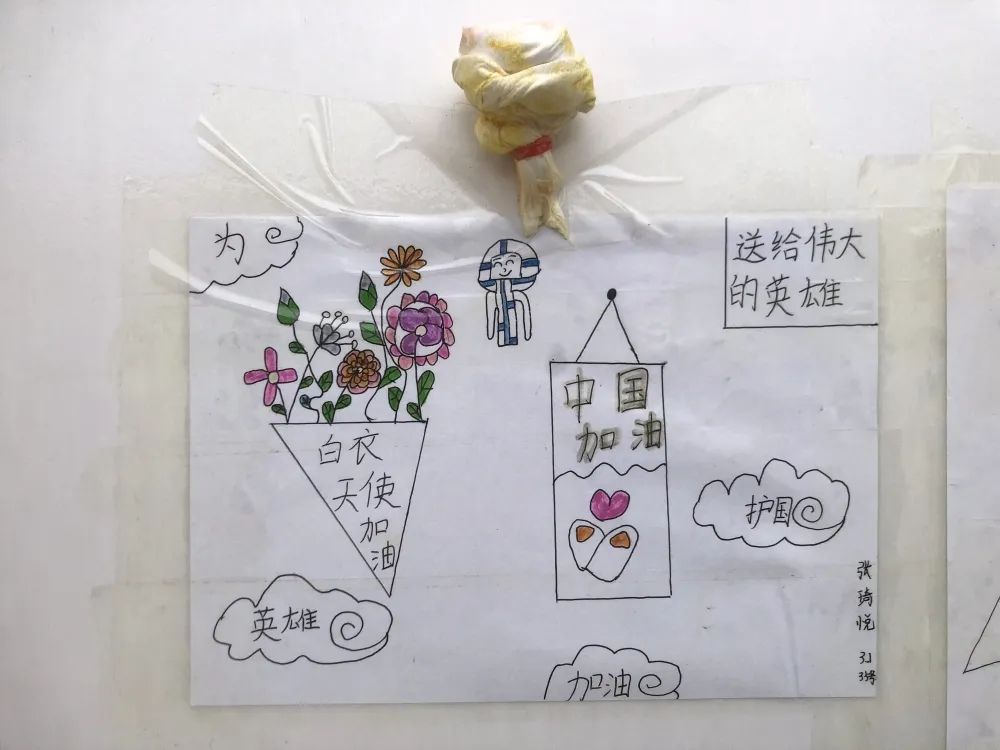 为
送给伟大
的英雄
白衣
天使
加
油
中国
加油
护国
英雄
加油
张
琦
悦
3.1
35号